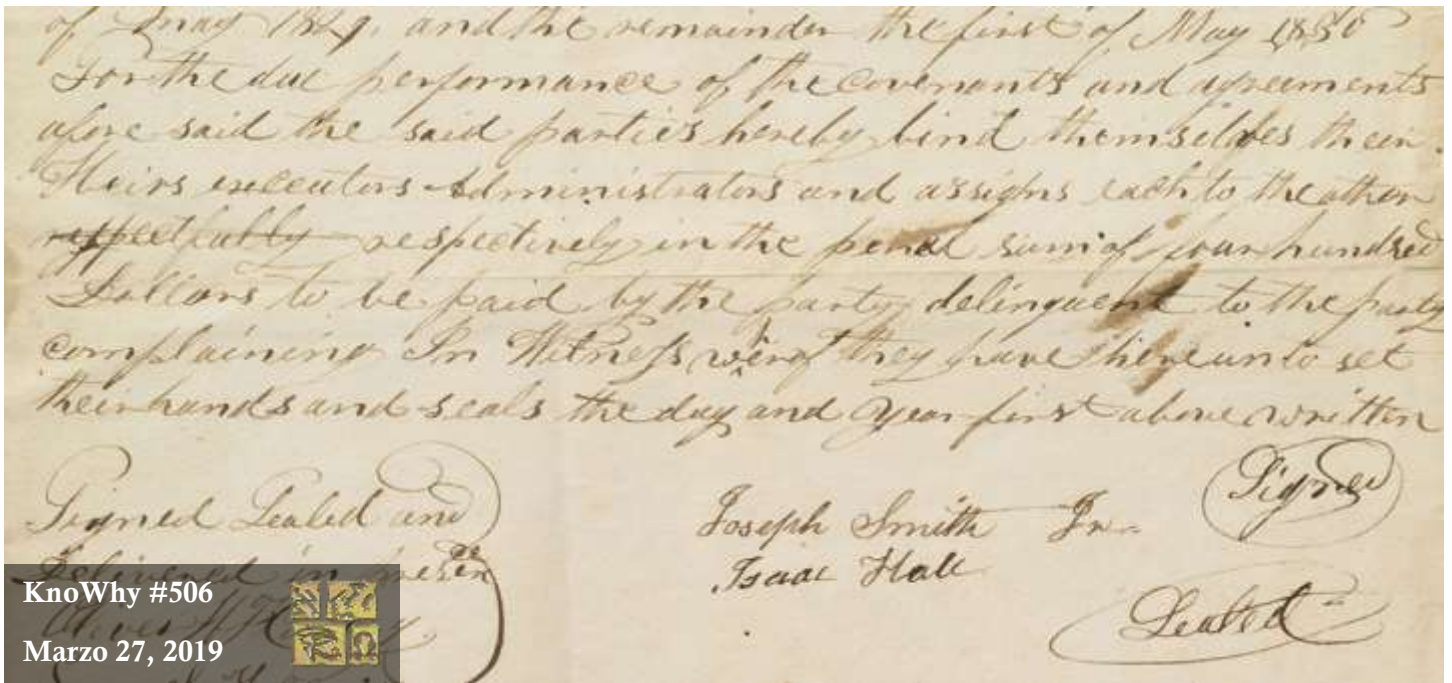 of May 1829, and the remainder the first of May 1830
For the due performance of the covenants and agreements
afore said the said parties hereby bind themselves their
Heirs executors Administrators and assigns each to the other
respectfully respectively in the penal sum of four hundred
Dollars to be paid by the party delinquent to the party
complaining In Witness werof they have hereunto set
their hands and seals the day and year first above written
Signed Sealed and
Joseph Smith Jr.
Signed
Delivered in
Isaac Hale
Sealed
KnoWhy #506
Marzo 27, 2019